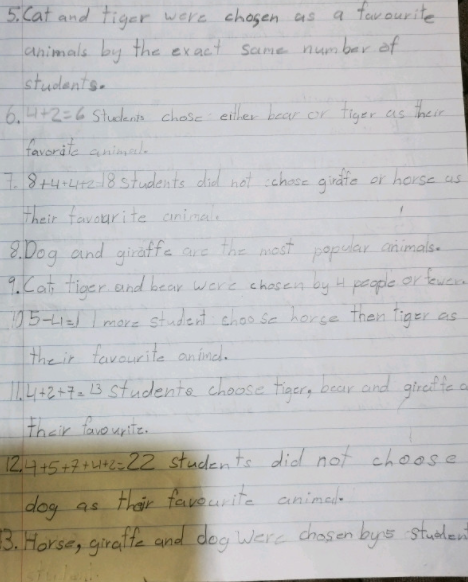 5. Cat and tiger were chosen as a favourite
animals by the exact same number of
students.
6. 4+2=6 Students chose either bear or tiger as their
favorite animal.
7. 8+4+4+2=18 students did not chose giraffe or horse as
their favourite animal.
8. Dog and giraffe are the most popular animals.
9. Cat, tiger and bear were chosen by 4 people or fewer.
10 5-4=1 1 more student choose horse then tiger as
their favourite animal.
11. 4+2+7=13 students choose tiger, bear and giraffe a
their favourite.
12. 4+5+7+4+2=22 students did not choose
dog as their favourite animal.
3. Horse, giraffe and dog were chosen by 5 student